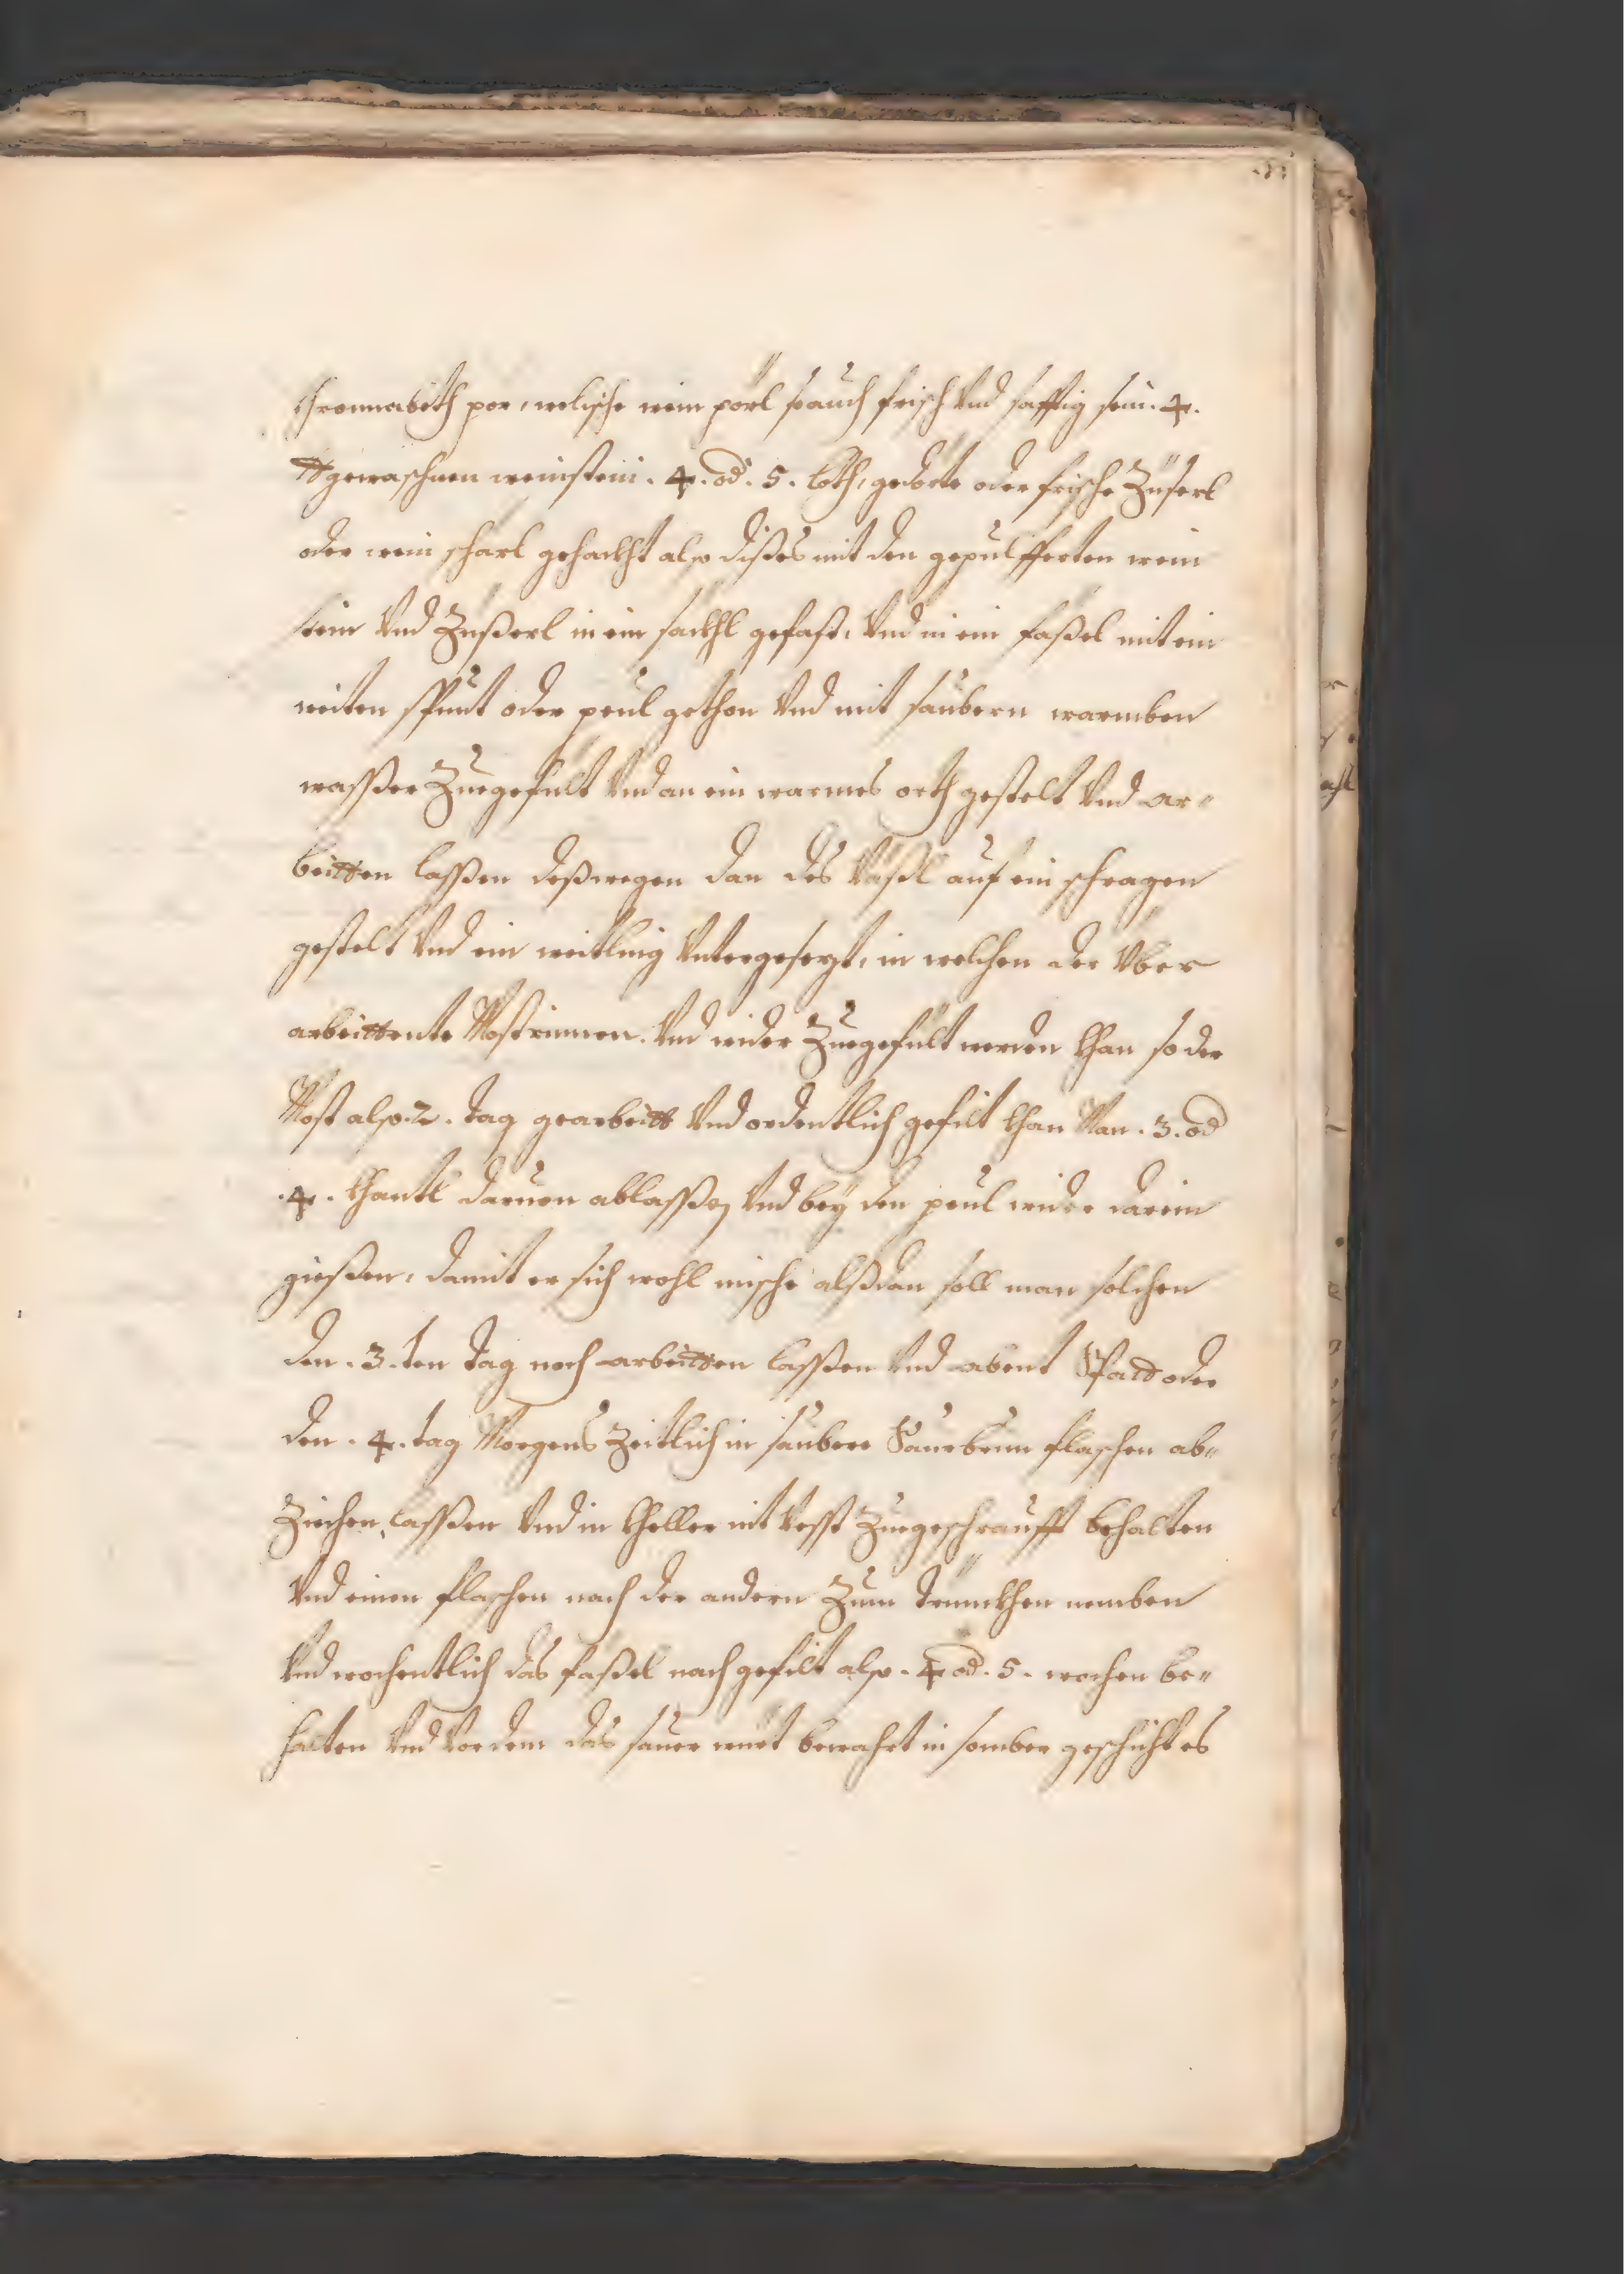 khronnabeth por, welische wein pörl so auch frisch Vnd safftig sein. 4.
tt gewaschnen weinstein. 4. od. 5. Loth, gedörte oder frische Züserl
oder wein scharl gehackht also dißes mit den gepulfferten wein
stein Vnd Zußerl in ein sackhl gefast, Vnd in ein faßel mit ein
weiten spunt oder peul gethon Vnd mit saubern warmben
waßer Zuegefült Vnd an ein warmes orth gestelt Vnd ar„
beitten laßen deßwegen dan des Väßl auf ein schragen
gestelt Vnd ein weitling Vntergesezt, in welchen der Vber
arbeittente Most rinnen. Vnd wider Zuegefült werden khan so der
Most also. 2. tag gearbeitt Vnd ordentlich gefilt khan Man. 3. od
.4. khantl daruon ablaßen Vnd bey den peul wider darein
gießen, damit er sich wohl mische alßdan soll man solchen
den. 3. ten tag noch arbeitten laßen Vnd abent Spatt oder
den. 4. tag Morgens Zeitlich in saubere Saurbrun flaschen ab„
Ziechen laßen Vnd in kheller mit Vesst Zuegeschraufft behalten
Vnd einen flaschen nach der andern Zum trünckhen nemben
Vnd wochentlich das faßel nach gefilt also. 4 od. 5. wochen be„
halten Vnd Vor dem das sauer würt bewahrt in somber geschicht es